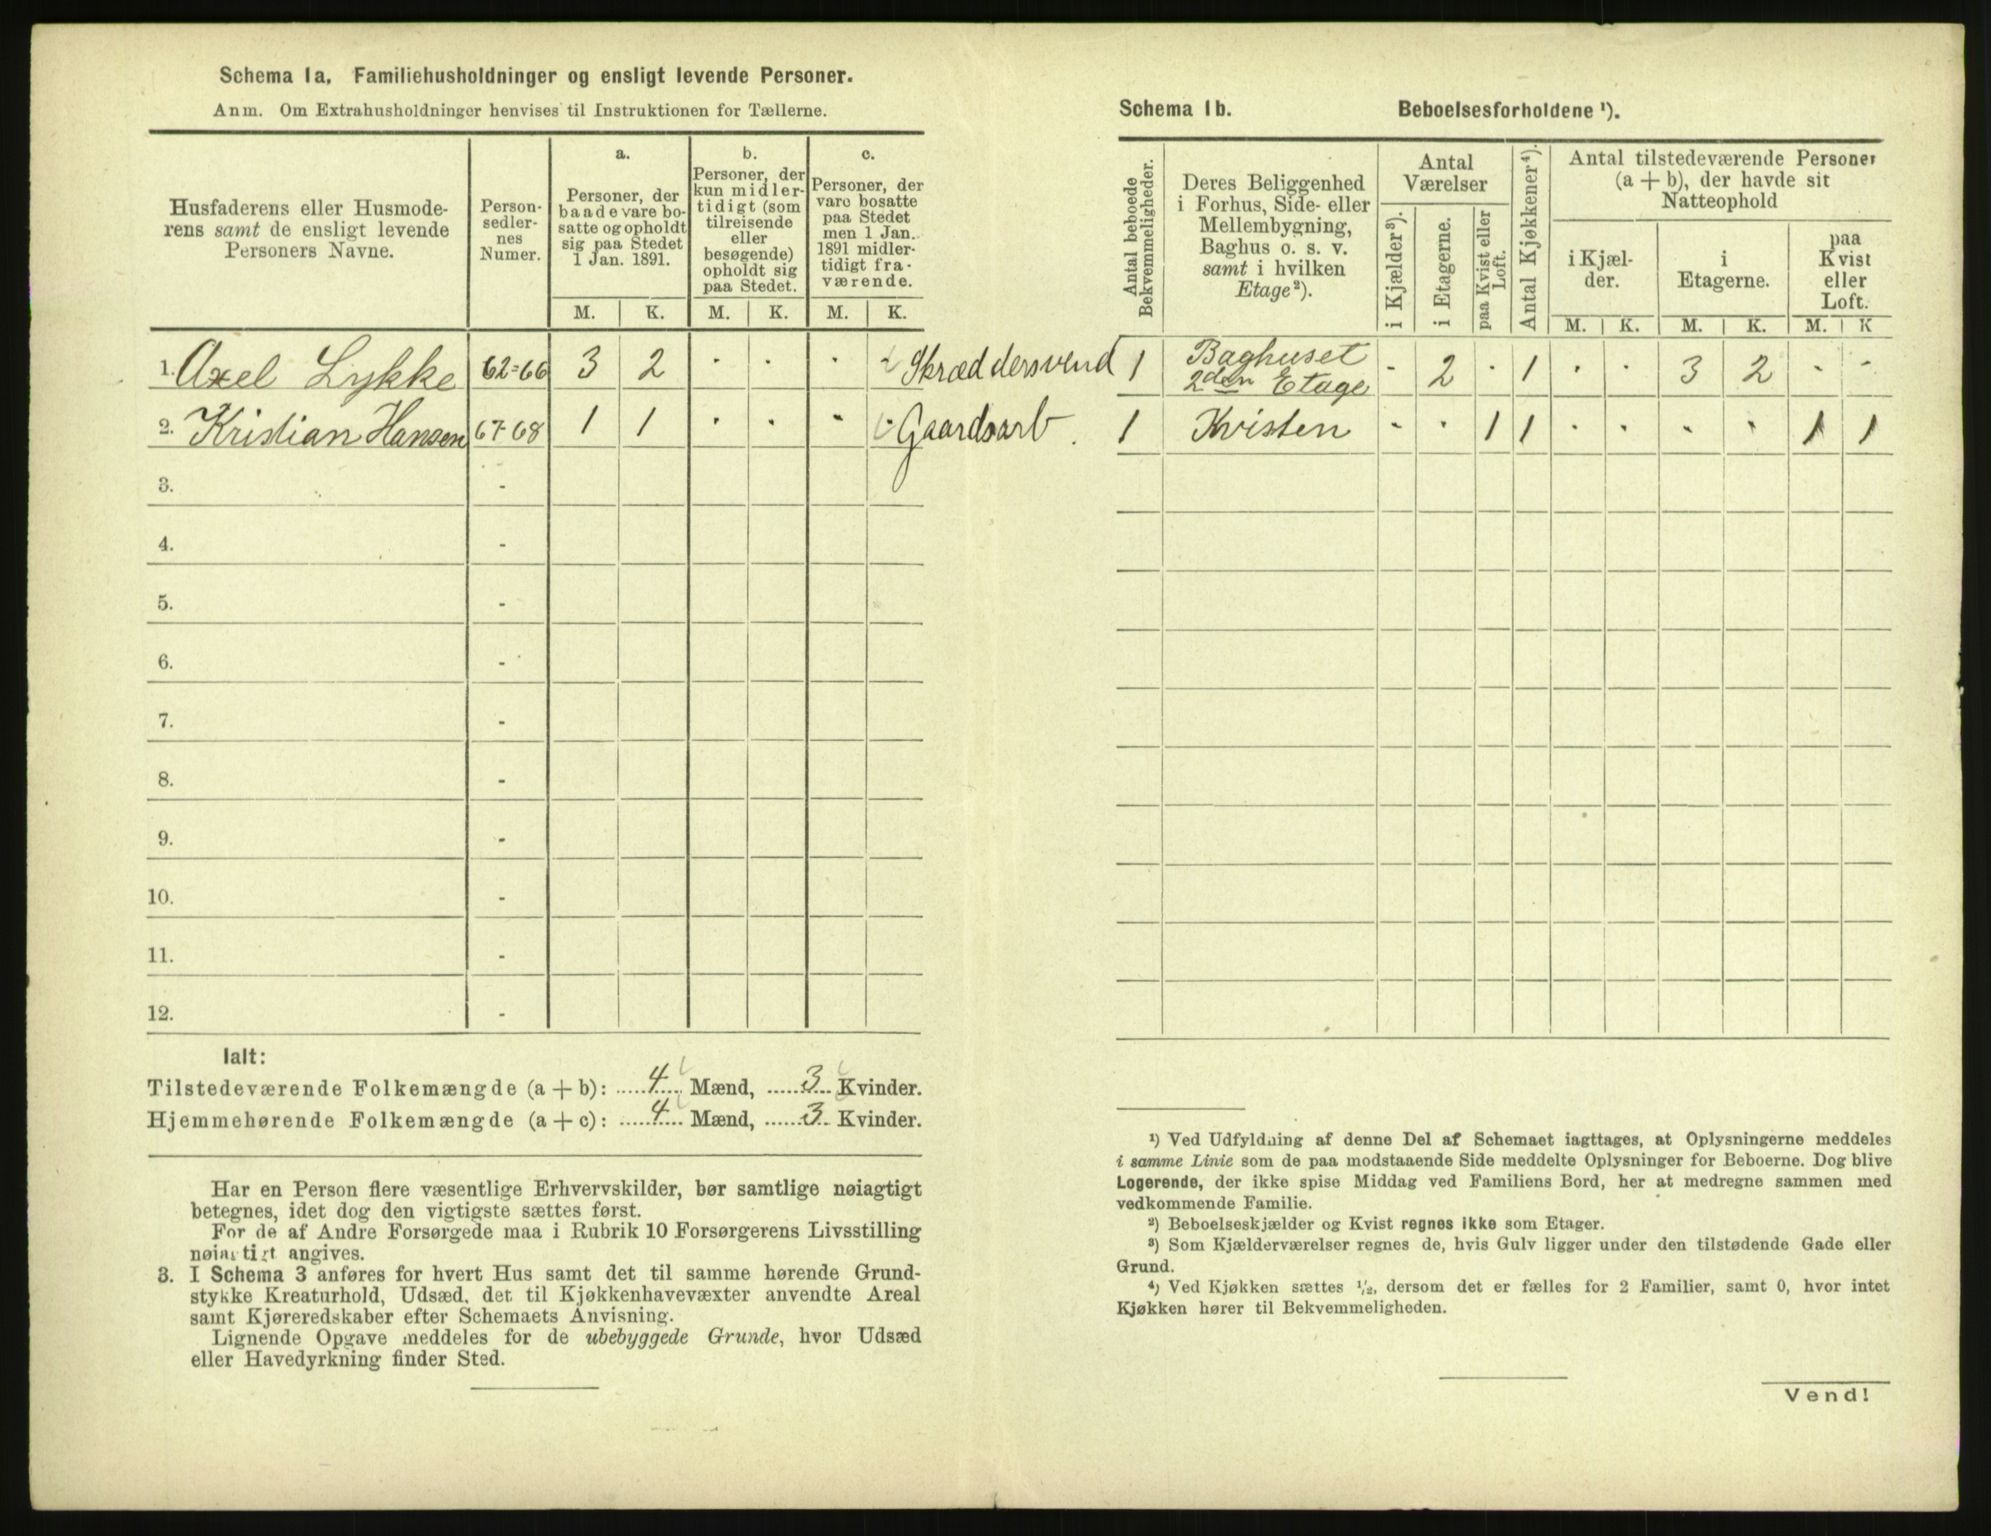 Schema 1a. Familiehusholdninger og ensligt levende Personer.
Anm. Om Extrahusholdninger henvises til Instruktionen for Tællerne.
Husfaderens eller Husmode-
rens samt de ensligt levende
Personers Navne.
Person-
sedler-
nes
Numer.
a.
Personer, der
baade vare bo-
satte og opholdt
sig paa Stedet
1 Jan. 1891.
b.
Personer, der
kun midler-
tidigt (som
tilreisende
eller
besøgende)
opholdt sig
paa Stedet.
c.
Personer, der
vare bosatte
paa Stedet
men 1 Jan.
1891 midler-
tidigt fra-
værende.
M. K. M. K. M. K.
1. Axel Lykke 62=66 3 2 · · · · Skræddersvend
2. Kristian Hansen 67-68 1 1 · · · · Gaardsarb.
3. -
4. -
5. -
6. -
7. -
8. -
9. -
10. -
11. -
12. -
Ialt:
Tilstedeværende Folkemængde (a + b): 4 Mænd, 3 Kvinder.
Hjemmehørende Folkemængde (a + c): 4 Mænd, 3 Kvinder.
Har en Person flere væsentlige Erhvervskilder, bør samtlige nøiagtigt
betegnes, idet dog den vigtigste sættes først.
For de af Andre Forsørgede maa i Rubrik 10 Forsørgerens Livsstilling
nøiagtigt angives.
3. I Schema 3 anføres for hvert Hus samt det til samme hørende Grund-
stykke Kreaturhold, Udsæd, det til Kjøkkenhavevæxter anvendte Areal
samt Kjøreredskaber efter Schemaets Anvisning.
Lignende Opgave meddeles for de ubebyggede Grunde, hvor Udsæd
eller Havedyrkning finder Sted.
Schema 1b. Beboelsesforholdene ¹).
Antal beboede
Bekvemmeligheder.
Deres Beliggenhed
i Forhus, Side- eller
Mellembygning,
Baghus o. s. v.
samt i hvilken
Etage²).
Antal
Værelser
i Kjælder³).
i Etagerne.
paa Kvist eller
Loft.
Antal Kjøkkener⁴).
Antal tilstedeværende Personer
(a + b), der havde sit
Natteophold
i Kjæl-
der.
i
Etagerne.
paa
Kvist
eller
Loft.
M. K. M. K. M. K
1 Baghuset
2den Etage - 2 · 1 · · 3 2 - -
1 Kvisten - · 1 1 · · · · 1 1
¹) Ved Udfyldning af denne Del af Schemaet iagttages, at Oplysningerne meddeles
i samme Linie som de paa modstaaende Side meddelte Oplysninger for Beboerne. Dog blive
Logerende, der ikke spise Middag ved Familiens Bord, her at medregne sammen med
vedkommende Familie.
²) Beboelseskjælder og Kvist regnes ikke som Etager.
³) Som Kjælderværelser regnes de, hvis Gulv ligger under den tilstødende Gade eller
Grund.
⁴) Ved Kjøkken sættes ½, dersom det er fælles for 2 Familier, samt 0, hvor intet
Kjøkken hører til Bekvemmeligheden.
Vend!